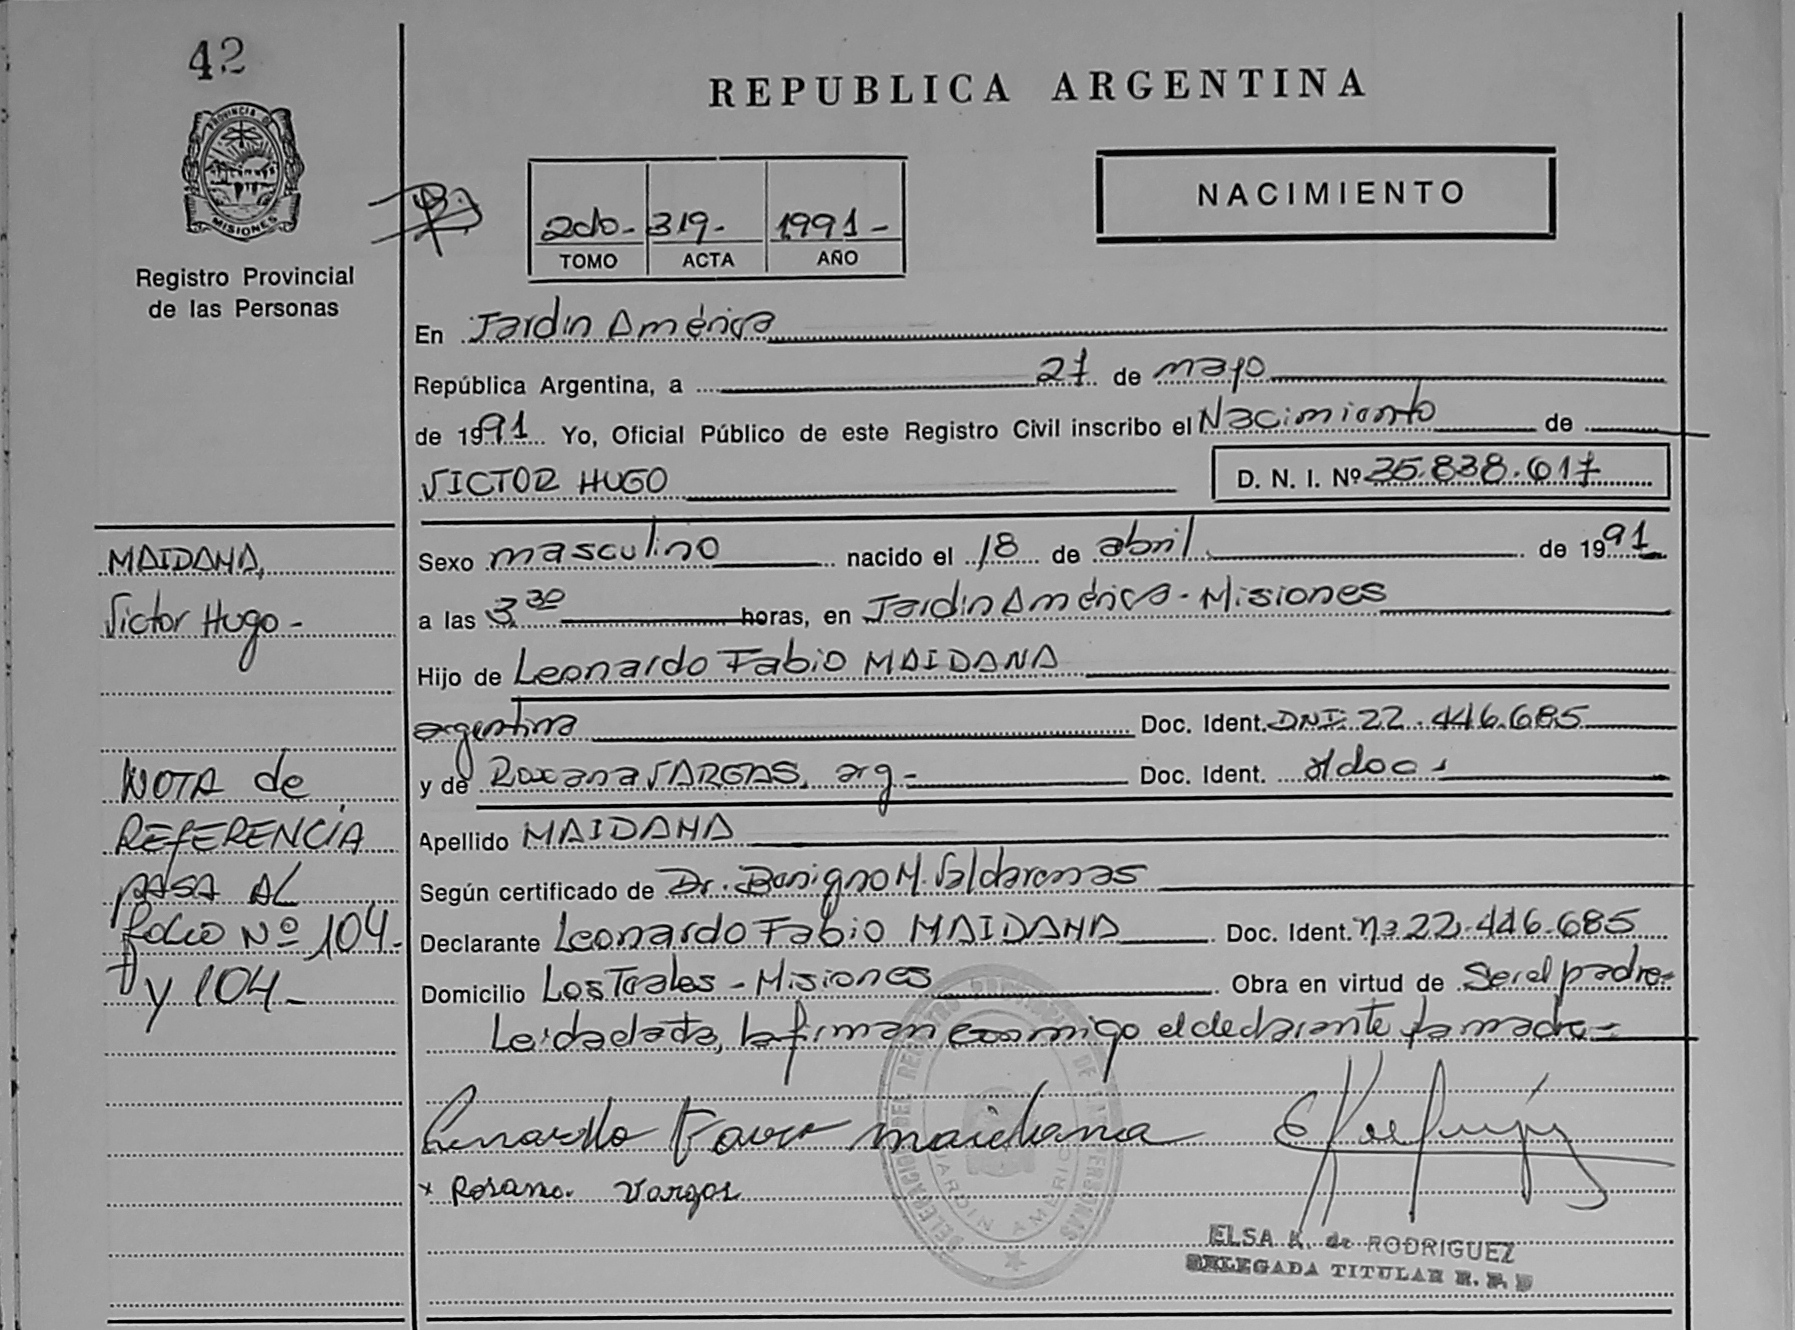 42
PROVINCIA DE
MISIONES
Registro Provincial
de las Personas
REPUBLICA ARGENTINA
NACIMIENTO
2do- 319- 1991-
TOMO ACTA AÑO
En Jardin América
República Argentina, a 27 de mayo
de 1991 Yo, Oficial Público de este Registro Civil inscribo el Nacimiento de
VICTOR HUGO D. N. I. Nº 35.838.617
MAIDANA,
Victor Hugo-
Sexo masculino nacido el 18 de abril de 1991
a las 3 30 horas, en Jardin América - Misiones
Hijo de Leonardo Fabio MAIDANA
argentina Doc. Ident. DNI 22.446.685
y de Roxana VARGAS, arg- Doc. Ident.
Apellido MAIDANA
Según certificado de Dr. Benigno M. Valdarenas
Declarante Leonardo Fabio MAIDANA Doc. Ident. nº 22.446.685
Domicilio Los Teales - Misiones Obra en virtud de Ser el padre-
Leida el acta, la firman conmigo el declarante y la madre-
NOTA de
REFERENCIA
PASA AL
FOLIO Nº 104-
y 104-
Maidana
x Rosana Vargas
DELEGACION DEL REGISTRO DE LAS PERSONAS
JARDIN AMERICA
ELSA K. de RODRIGUEZ
DELEGADA TITULAR R. P. P